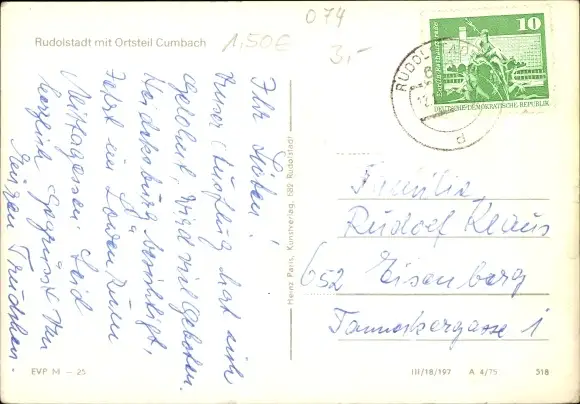 Rudolstadt mit Ortsteil Cumbach
074
1,50€
3,-
10
Berlin, Rathausstraße
DEUTSCHE DEMOKRATISCHE REPUBLIK
RUDOLSTADT
d
Ihr Lieben!
Unser Ausflug hat sich
gelohnt, wird viel geboten.
Heidecksburg besichtigt,
Jetzt im
Mittagessen. Seid
herzlich gegrüßt von
Heinz Paris, Kunstverlag, 682 Rudolstadt
Familie
Rudolf Klaus
652 Eisenberg
1
EVP M – 25
III/18/197 A 4/75 518